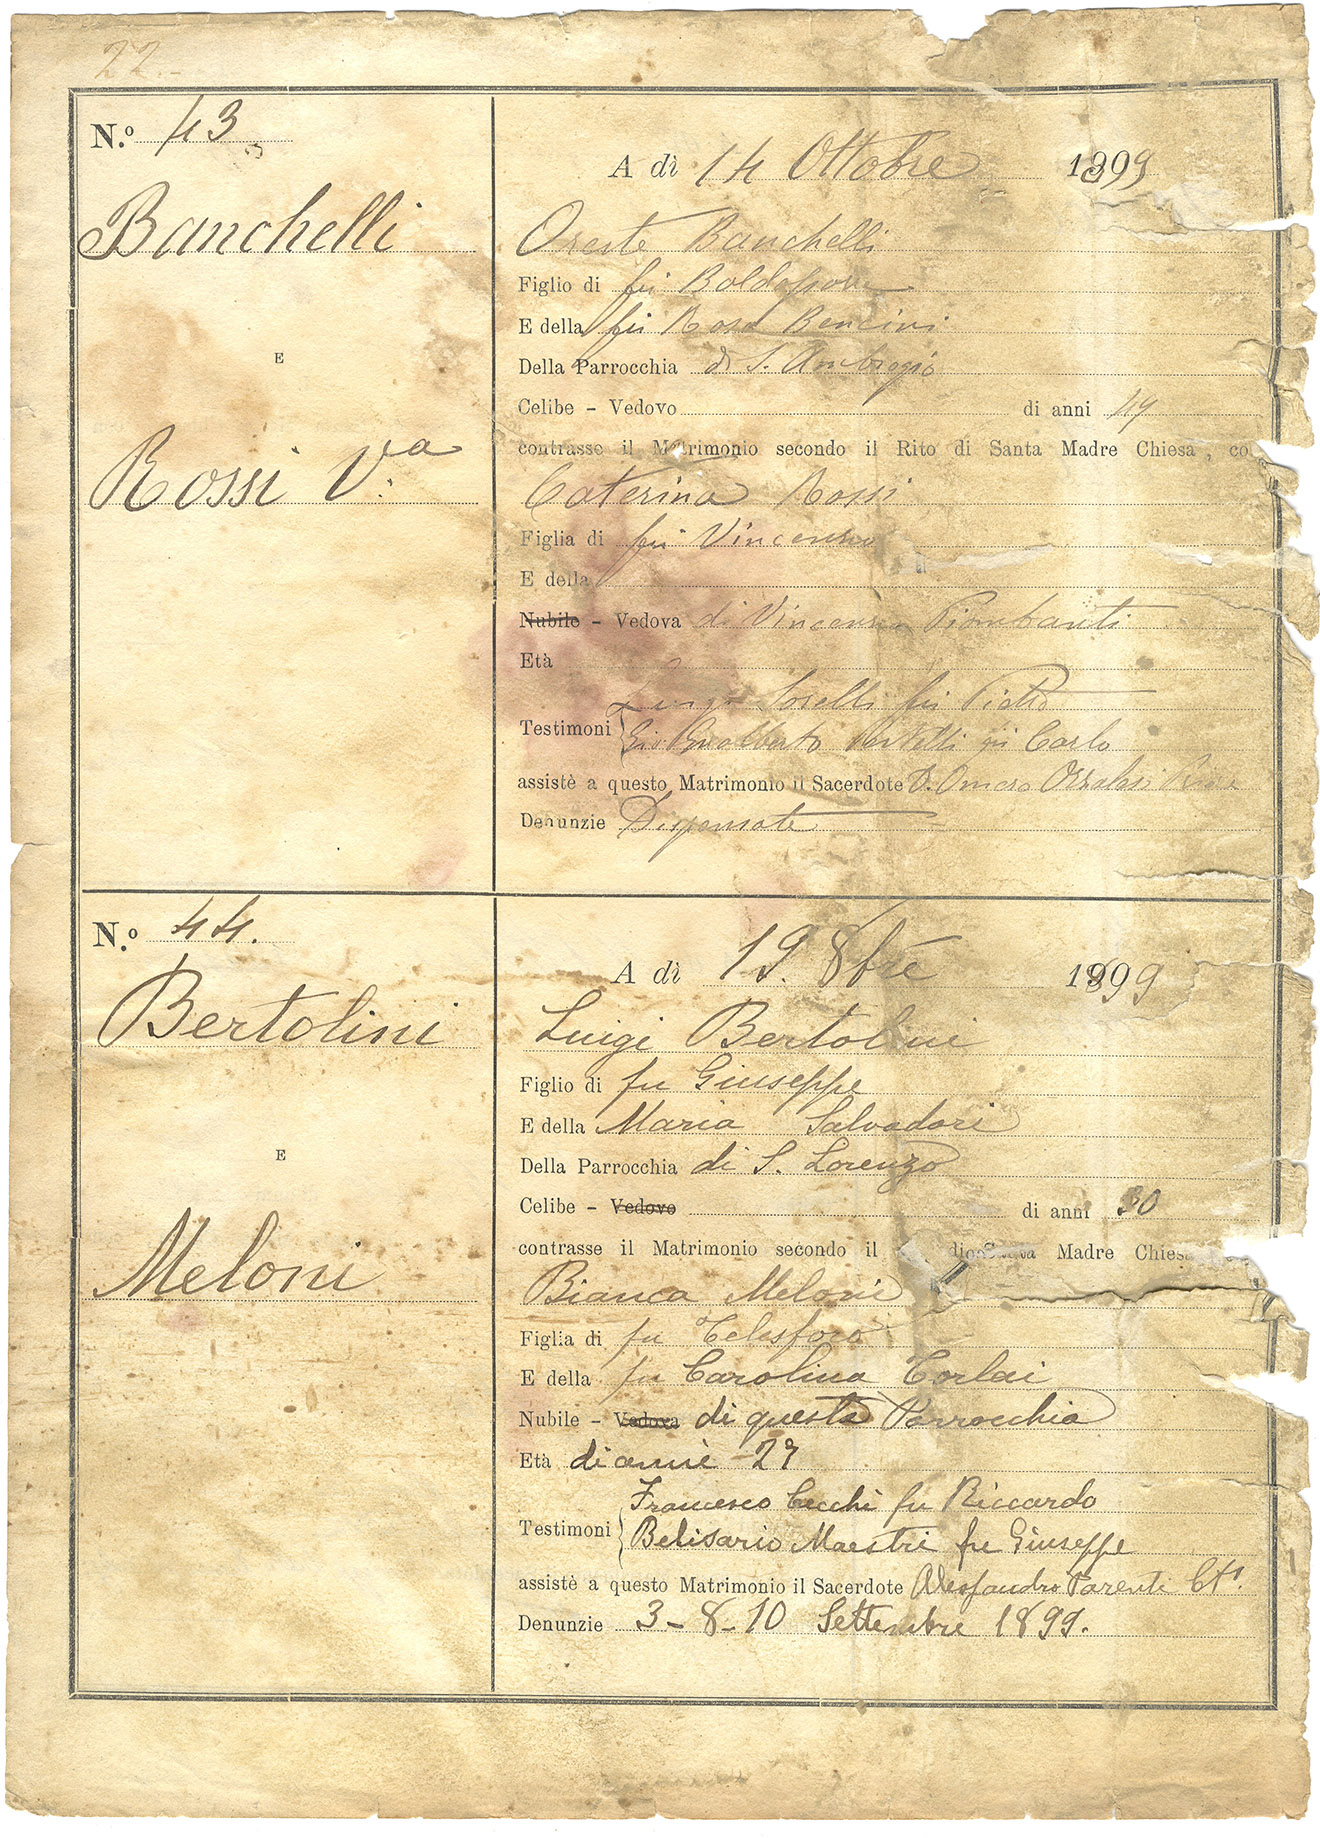 22
N.º 43
Banchelli
E
Rossi V.a
A dì 14 Ottobre 1899
Oreste Banchelli
Figlio di fu Baldassarre
E della fu Rosa Bencini
Della Parrocchia di S. Ambrogio
Celibe - Vedovo di anni
contrasse il Matrimonio secondo il Rito di Santa Madre Chiesa, co
Caterina Rossi
Figlia di fu Vincenzo
E della
Nubile - Vedova di Vincenzo Piombanti
Età
Luigi Soselli fu Pietro
Testimoni Gio Gualberto fu Carlo
assistè a questo Matrimonio il Sacerdote D. Omero
Denunzie Dispensate
N.º 44.
Bertolini
E
Meloni
A dì 19. 8bre 1899
Luigi Bertolini
Figlio di fu Giuseppe
E della Maria Salvadori
Della Parrocchia di S. Lorenzo
Celibe - Vedovo di anni 30
contrasse il Matrimonio secondo il di Santa Madre Chies
Bianca Meloni
Figlia di fu Telesforo
E della fu Carolina Corlai
Nubile - Vedova di questa Parrocchia
Età di anni 27
Francesco Cecchi fu Riccardo
Testimoni Belisario Maestri fu Giuseppe
assistè a questo Matrimonio il Sacerdote Alessandro Parenti
Denunzie 3 - 8 - 10 Settembre 1899.